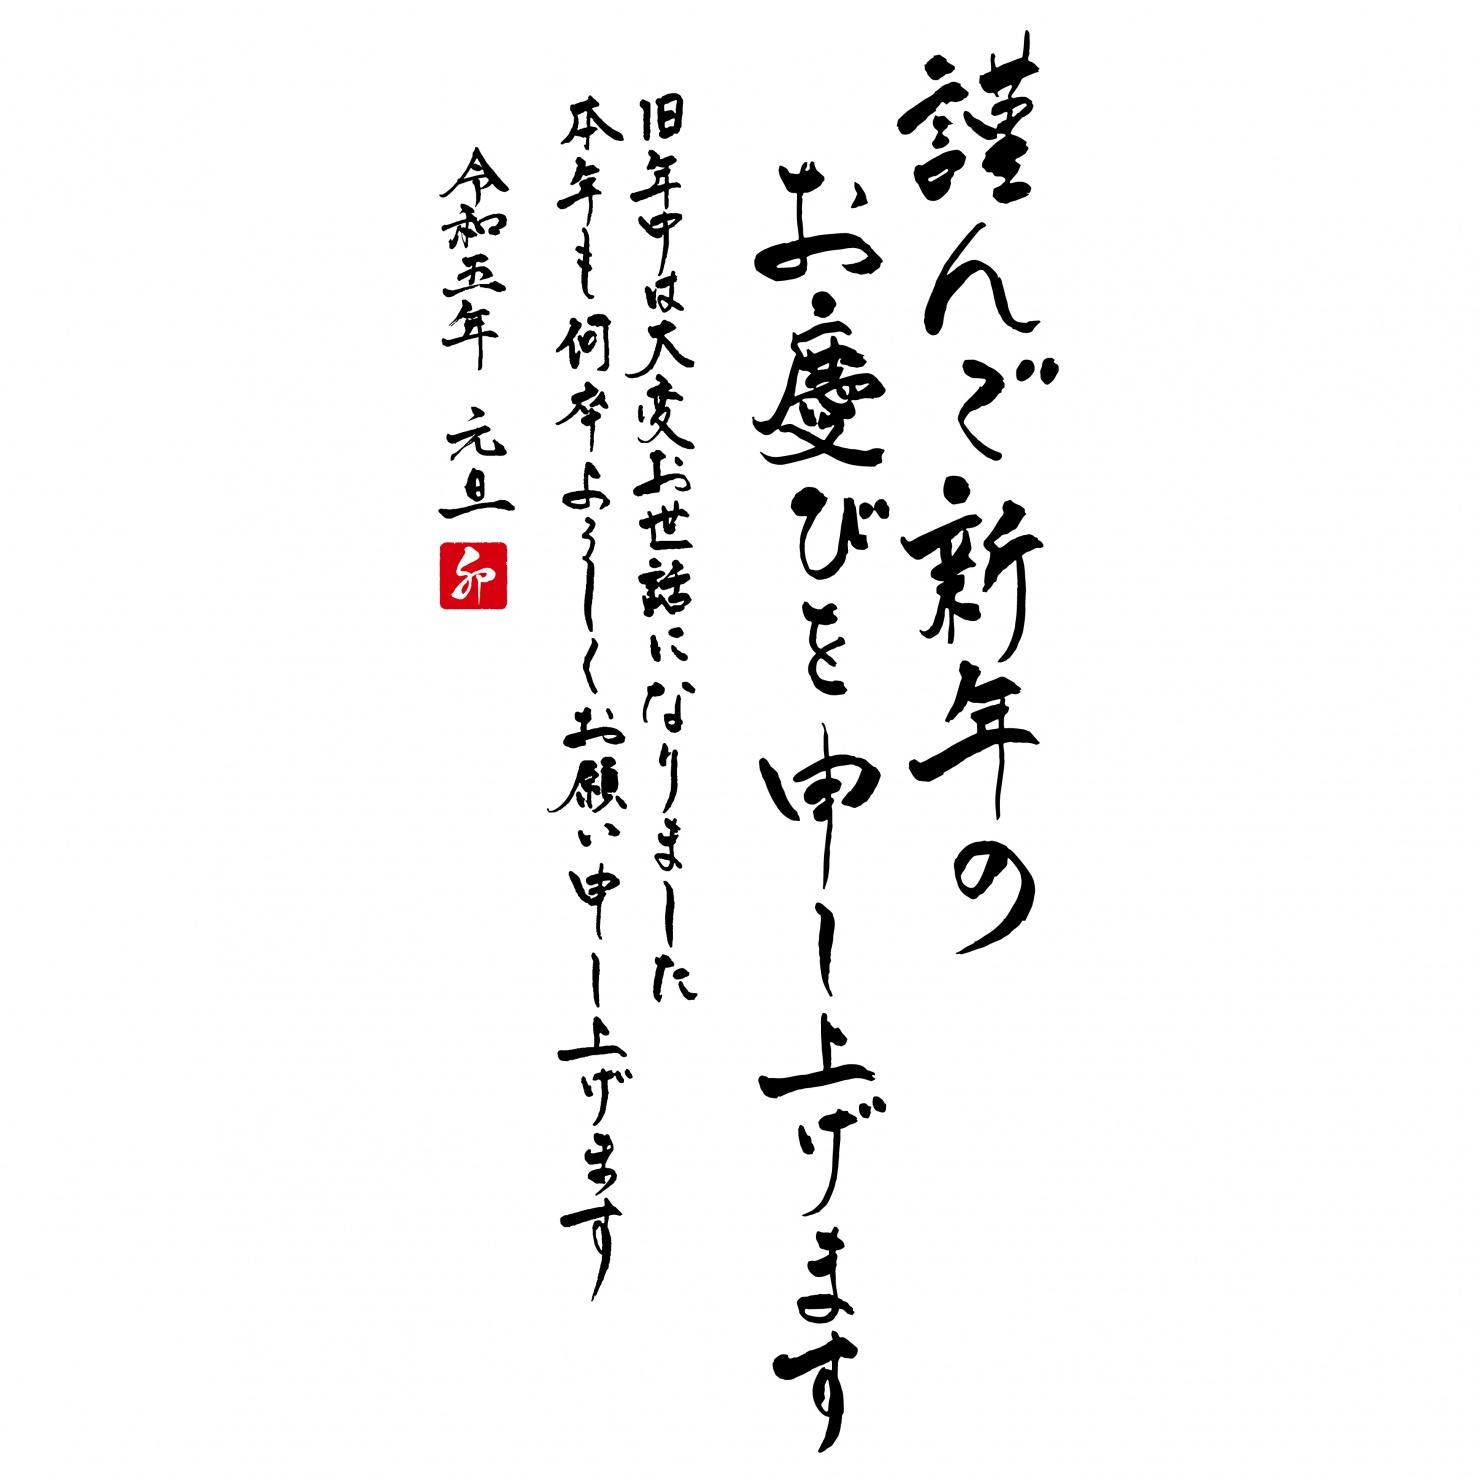 謹んご新年の
お慶びを申し上げます
旧年中は大変お世話になりました
本年も何卒よろしくお願い申し上げます
令和五年 元旦
卯